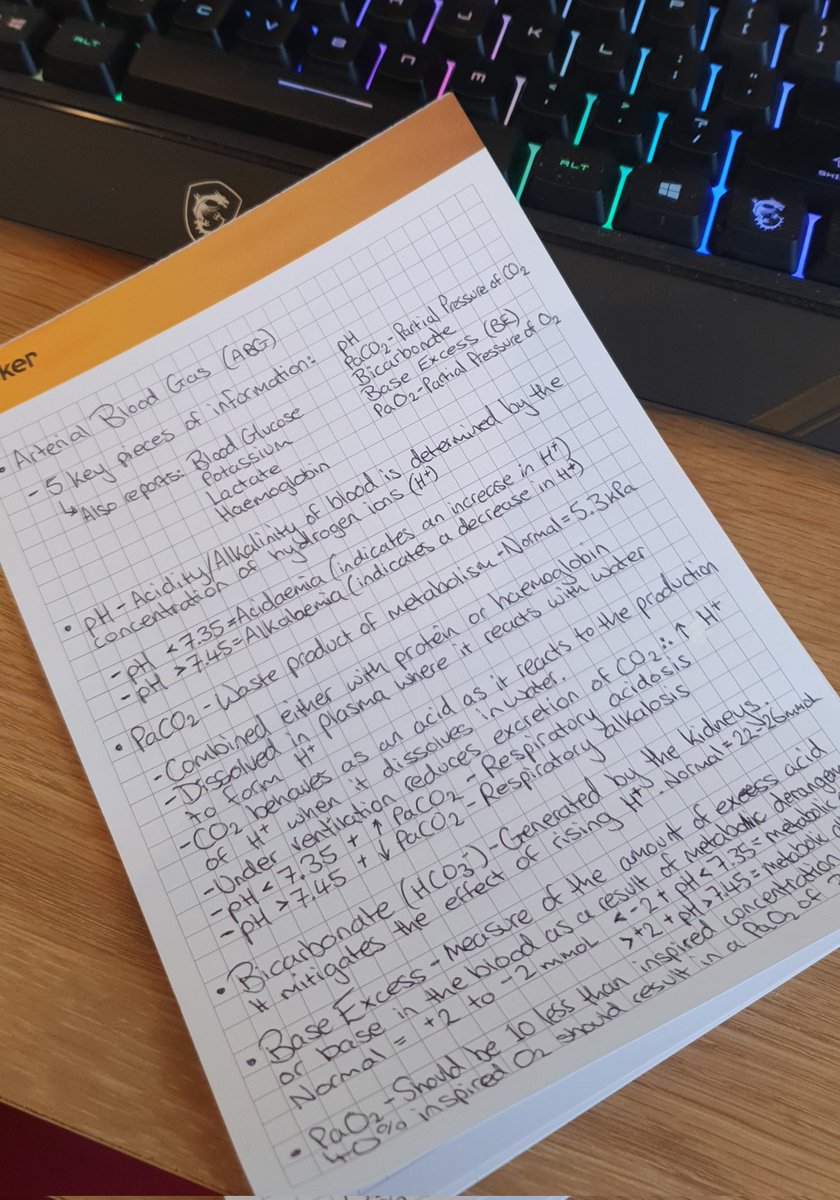 ker
• Arterial Blood Gas (ABG)
- 5 key pieces of information: pH
PaCO2 - Partial Pressure of CO2
Bicarbonate
Base Excess (BE)
PaO2 - Partial Pressure of O2
↳ Also reports: Blood Glucose
Potassium
Lactate
Haemoglobin
• pH - Acidity/Alkalinity of blood is determined by the
concentration of hydrogen ions (H+)
- pH <7.35 = Acidaemia (indicates an increase in H+)
- pH >7.45 = Alkalaemia (indicates a decrease in H+)
• PaCO2 - Waste product of metabolism - Normal = 5.3kPa
- Combined either with protein or haemoglobin
- Dissolved in plasma where it reacts with water
to form H+
- CO2 behaves as an acid as it reacts to the production
of H+ when it dissolves in water.
- Under ventilation reduces excretion of CO2 ∴ ↑ H+
- pH < 7.35 + ↑ PaCO2 - Respiratory acidosis
- pH > 7.45 + ↓ PaCO2 - Respiratory alkalosis
• Bicarbonate (HCO3-) - Generated by the kidneys.
It mitigates the effect of rising H+ - Normal = 22-26mmol
• Base Excess - measure of the amount of excess acid
or base in the blood as a result of metabolic
Normal = +2 to -2 mmol < -2 + pH < 7.35 = metabolic
> +2 + pH > 7.45 = metabolic
• PaO2 - Should be 10 less than inspired concentration
40% inspired O2 should result in a PaO2 of
ALT
C
V
B
N
M
J
K
L
P
ALT